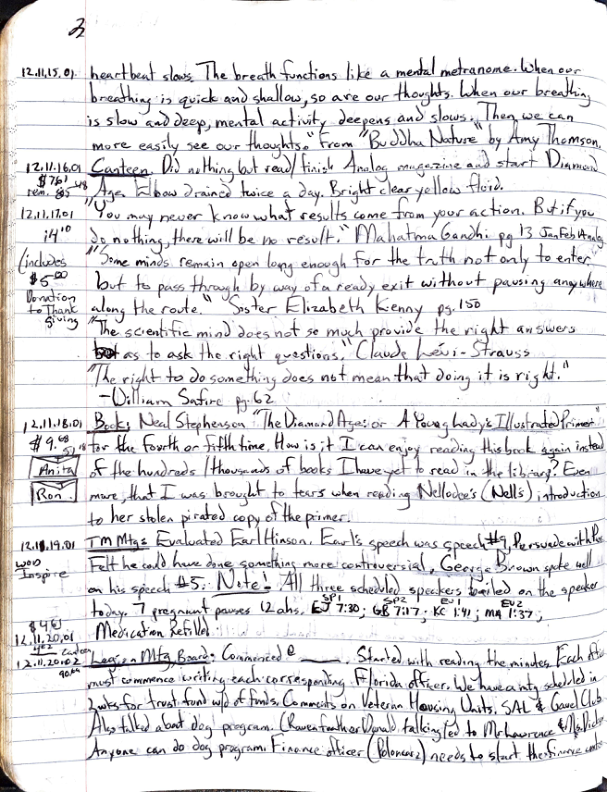 3
12.11.15.01 heartbeat slows. The breath functions like a mental metranome. When our
breathing is quick and shallow, so are our thoughts. When our breathing
is slow and deep, mental activity deepens and slows. Then we can
more easily see our thoughts." From "Buddha Nature" by Amy Thomson.
12.11.16.01 Canteen. Did nothing but read/finish Analog magazine and start Diamond
Age. Elbow drained twice a day. Bright clear yellow fluid.
12.11.17.01 "You may never know what results come from your action. But if you
do nothing, there will be no result." Mahatma Gandhi pg 13 Jan Feb Analog
(includes "Some minds remain open long enough for the truth not only to enter
$5.00 but to pass through by way of a ready exit without pausing anywhere
Donation along the route." Sister Elizabeth Kenny pg. 150
to Thanks
giving "The scientific mind does not so much provide the right answers
as to ask the right questions." Claude Lévi-Strauss
"The right to do something does not mean that doing it is right."
-William Safire pg. 62
12.11.18.01 Book: Neal Stephenson "The Diamond Age: or A Young Lady's Illustrated Primer"
$9.68 for the fourth or fifth time. How is it I can enjoy reading this book again instead
Anita of the hundreds/thousands of books I have yet to read in the library? Even
Ron more, that I was brought to tears when reading Nellodee's (Nell's) introduction
to her stolen pirated copy of the primer.
12.11.19.01 TM Mtg: Evaluated Earl Hinson. Earl's speech was speech #9, Persuade with
WOD Felt he could have done something more controversial, George Brown spoke well
Inspire on his speech #5. Note! All three scheduled speakers bailed on the speaker
today. 7 pregnant pauses 12 ahs. SP1 EJ 7:30; SP2 GB 7:17; EV1 KC 1:41; EV2 MA 1:37;
12.11.20.01 Medication Refilled.
12.11.20.02 Legion Mtg, Board: Commenced @ ____. Started with reading the minutes. Each
must commence writing each corresponding Florida officer. We have a mtg scheduled in
2 wks for trust fund w/d of funds. Comments on Veteran Housing Units, SAL & Gavel Club
Also talked about dog program. (Ravenfeather Donald talking [re] to Mr Lawrence &
Anyone can do dog program. Finance officer needs to start the finance